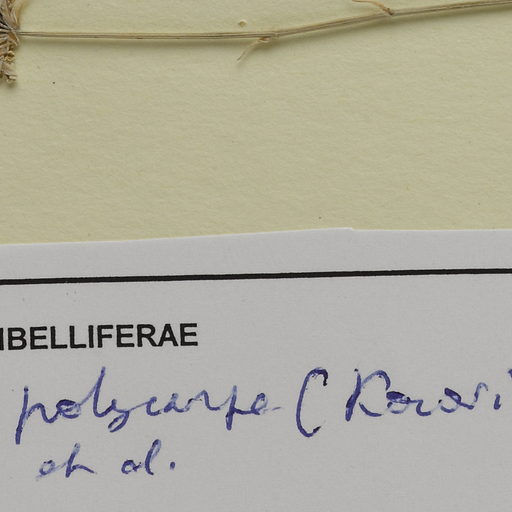 IBELLIFERAE
polycarpa (Korovi
et al.